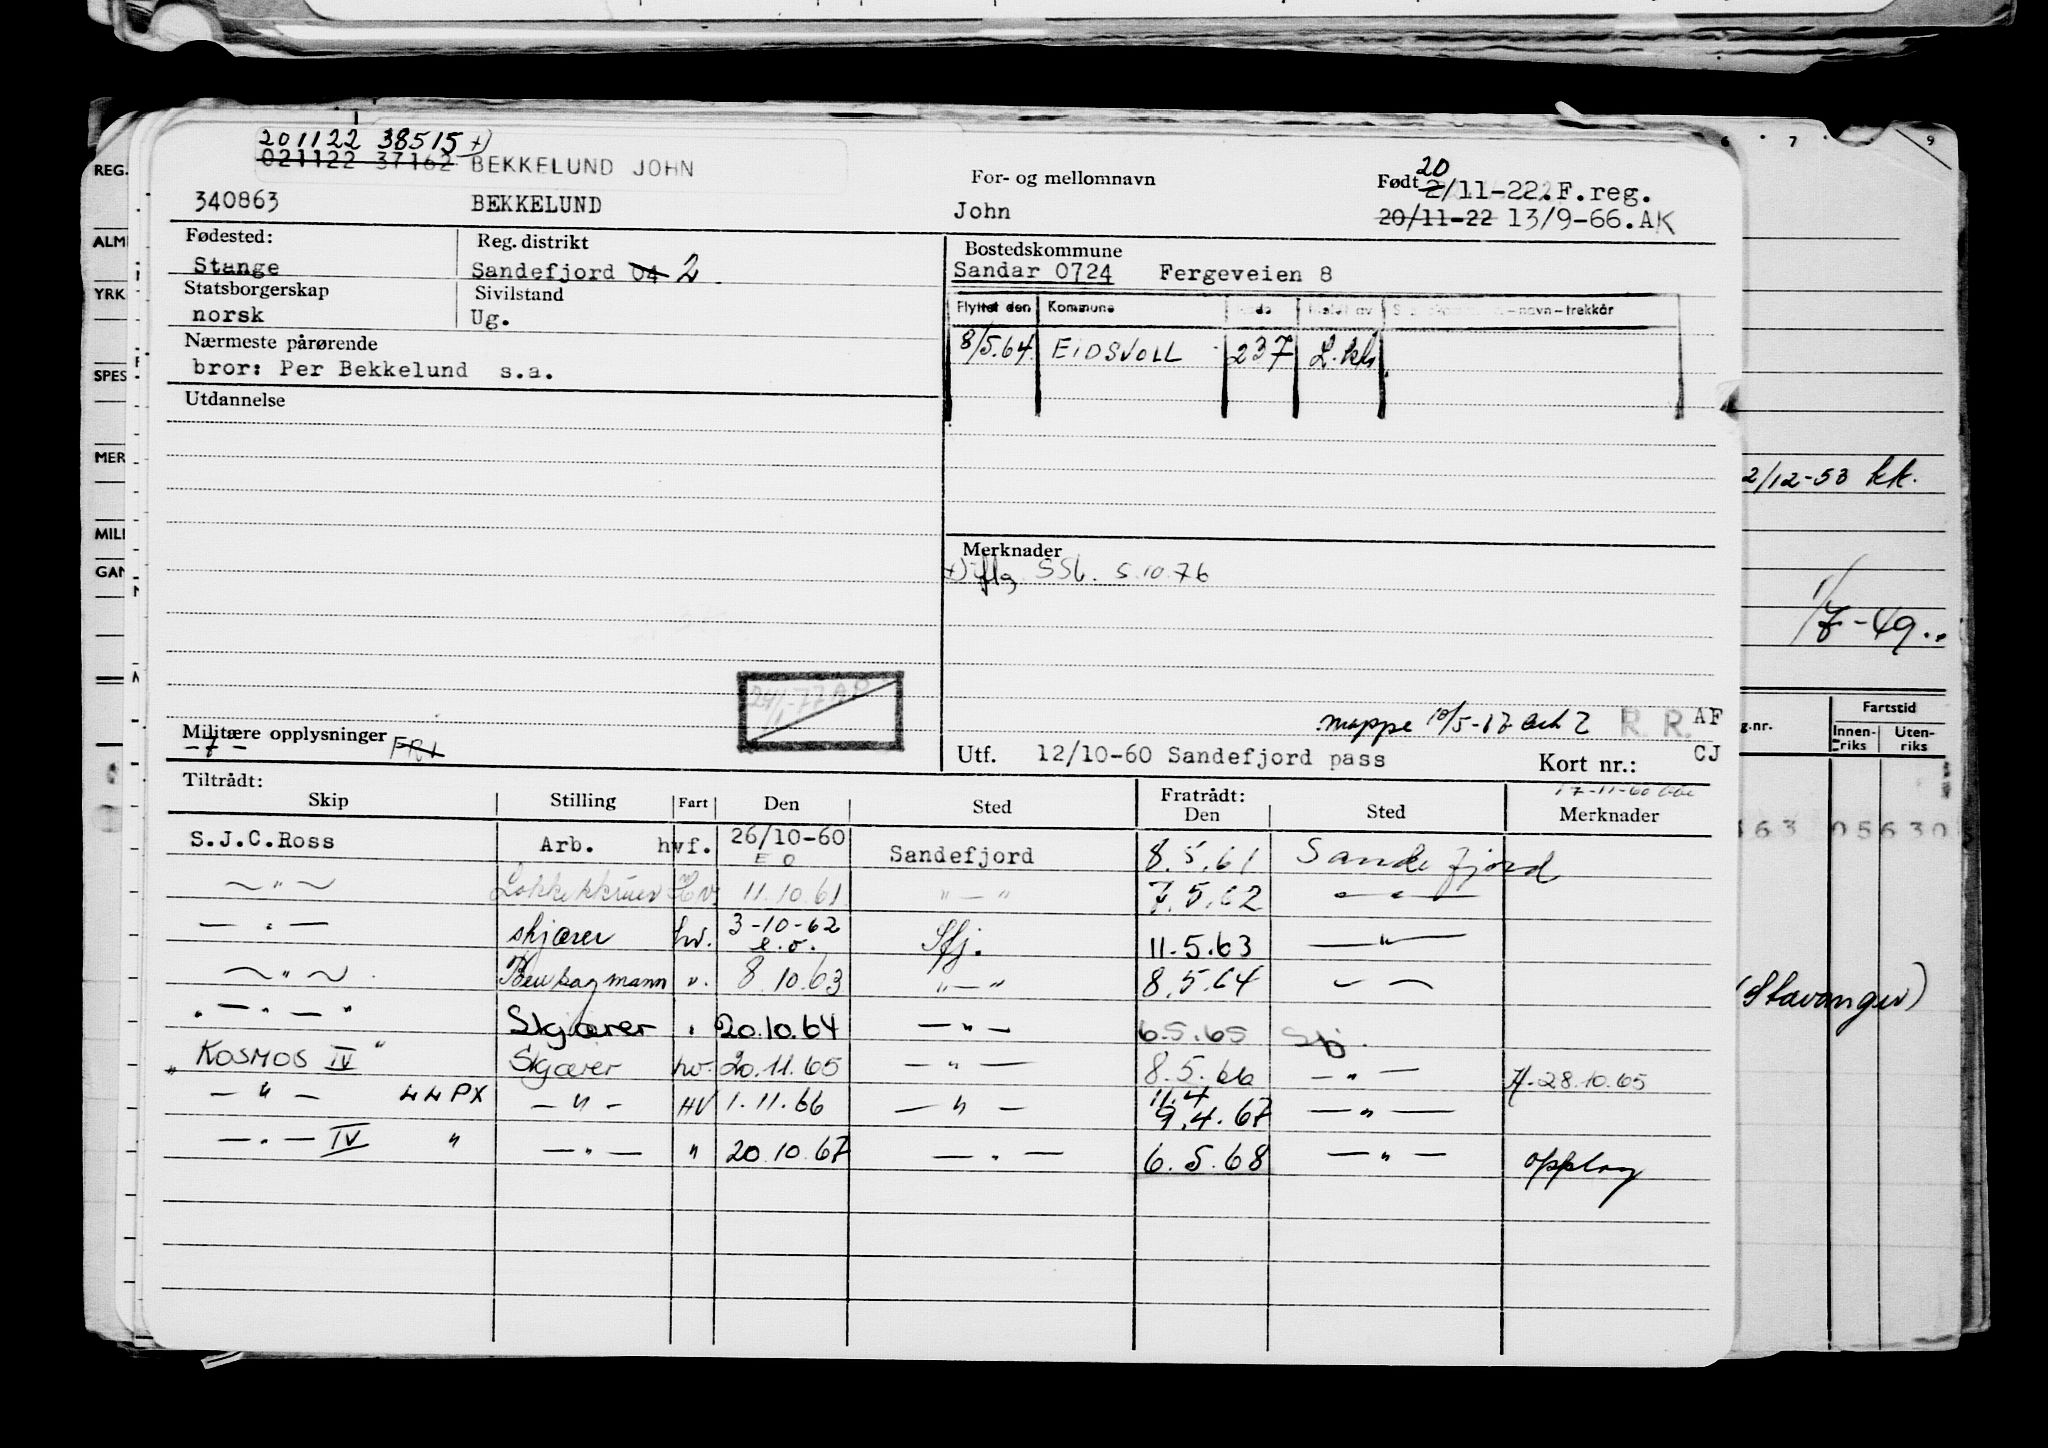 201122 38515 x)
021122 37162 BEKKELUND JOHN
340863 BEKKELUND
For- og mellomnavn
John
Født 20
2/11-22. F.reg.
20/11-22 13/9-66.AK
Fødested:
Stange
Reg. distrikt
Sandefjord 04 2
Statsborgerskap
norsk
Sivilstand
Ug.
Nærmeste pårørende
bror: Per Bekkelund s.a.
Utdannelse
Bostedskommune
Sandar 0724 Fergeveien 8
Flyttet den Kommune
8/5.64 EIDSVOLL 237
Merknader
x) iflg. SSb. 5.10.76
mappe 10/5-17 R. R. AF
Militære opplysninger
FRI
Utf. 12/10-60 Sandefjord pass Kort nr.: CJ
Tiltrådt:
Skip Stilling Fart Den Sted
Fratrådt:
Den Sted Merknader
S.J.C.Ross Arb. hvf. 26/10-60 Sandefjord 8.5.61 Sandefjord
E O
— " — Hv. 11.10.61 " — " 7.5.62 — " —
— " — skjærer hv. 3-10-62 Sfj. 11.5.63 — " —
e.o.
— " — ". 8.10.63 " — " 8.5.64 — " —
" — " — " Skjærer " 20.10.64 — " — 6.5.65 Sfj.
" KOSMOS IV " Skjærer hv. 20.11.65 — " — 8.5.66 — " — 28.10.65
— " — 44PX — " — HV 1.11.66 — " — 11.4
9.4.67 — " —
— " — IV " — " — " 20.10.67 — " — 6.5.68 — " — opplag
REG.
ALM
YRK
SPES
MER
MILI
GAN
6 7 9
2/12-53 kk.
1/7-49..
g.nr. Fartstid
Innen-riks Uten-riks
163 05630
(Stavanger)